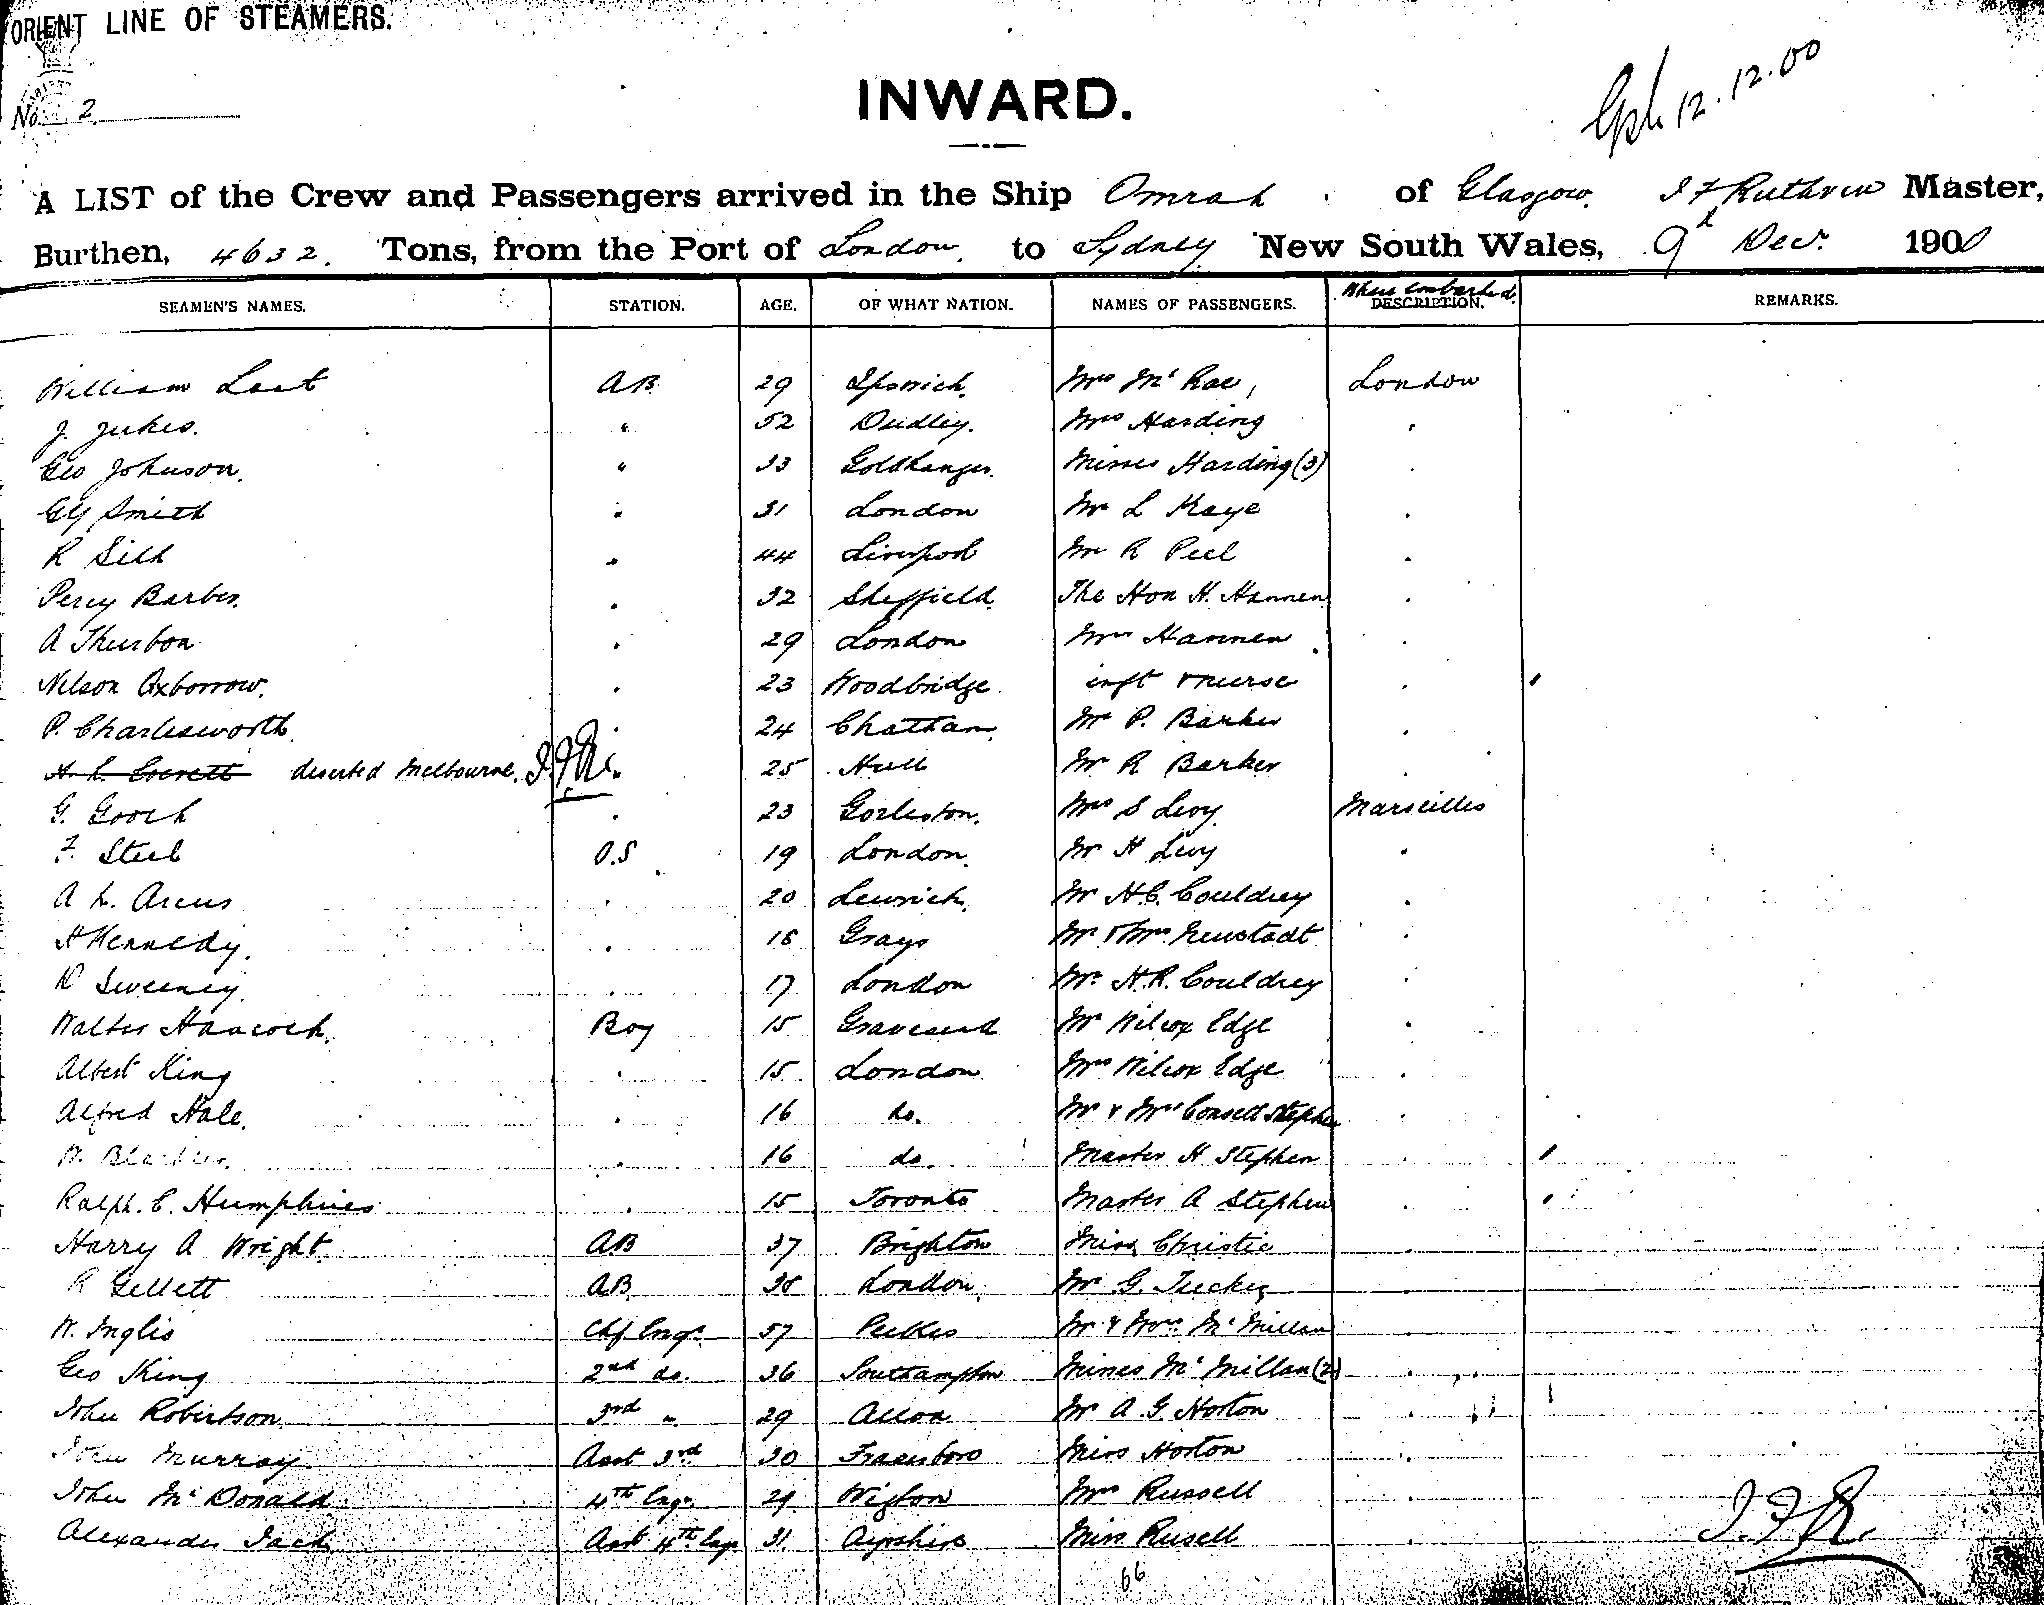 ORIENT LINE OF STEAMERS.
No. 2
INWARD.
12.12.00
A LIST of the Crew and Passengers arrived in the Ship Omrah of Glasgow. J F Ruthven Master,
Burthen, 4632. Tons, from the Port of London. to Sydney New South Wales, 9th Decr. 1900
SEAMEN'S NAMES. STATION. AGE. OF WHAT NATION. NAMES OF PASSENGERS. Where Embarked. DESCRIPTION. REMARKS.
William Last AB 29 Ipswich. Mrs Mc Rae, London
J. Jukes. " 52 Dudley. Mrs Harding
Geo Johnson. " 33 Goldhanger. Misses Harding (3)
Smith 31 London Mr L Kaye
R Silk 44 Liverpool Mr R Peel
Percy Barber. 32 Sheffield The Hon H. Hannen
A Thurbon 29 London Mrs Hannen
Nelson Oxborrow. 23 Woodbridge inft & nurse
P. Charlesworth. 24 Chatham. Mr P. Barker
A. L. Everett deserted Melbourne. J.F.R. 25 Hull Mr R Barker
G. Gooch 23 Gorleston. Mrs S Levy. Marseilles
F. Steel O.S 19 London. Mr H Levy
A L. Arcus 20 Lerwick. Mr H.C. Couldrey
H Kennedy. 18 Grays Mr & Mrs Neustadt
Sweeney. 17 London Mr. H.R. Couldrey
Walter Hancock. Boy 15 Gravesend Mr Wilcox Edge
Albert King 15 London Mrs Wilcox Edge
Alfred Hale. 16 do. Mr & Mrs Consett Stephen
W. 16 do. Master H Stephen
Ralph. C. Humphries 15 Toronto Master A Stephen
Harry A Wright AB 37 Brighton Miss Christie
R Gellett AB 38 London. Mr G. Tucker
W. Inglis Chf Engr. 57 Peebles Mr & Mrs Mc Millan
Geo King 2nd do. 36 Southampton Misses Mc Millan (2)
John Robertson 3rd " 29 Alloa Mr A G. Horton
John Murray Asst 3rd 30 Fraserboro Miss Horton
John Mc Donald 4th Engr. 29 Wigton Mrs Russell
Alexander Jack Asst 4th Engr 31 Ayrshire Miss Russell
66
J.F.R.